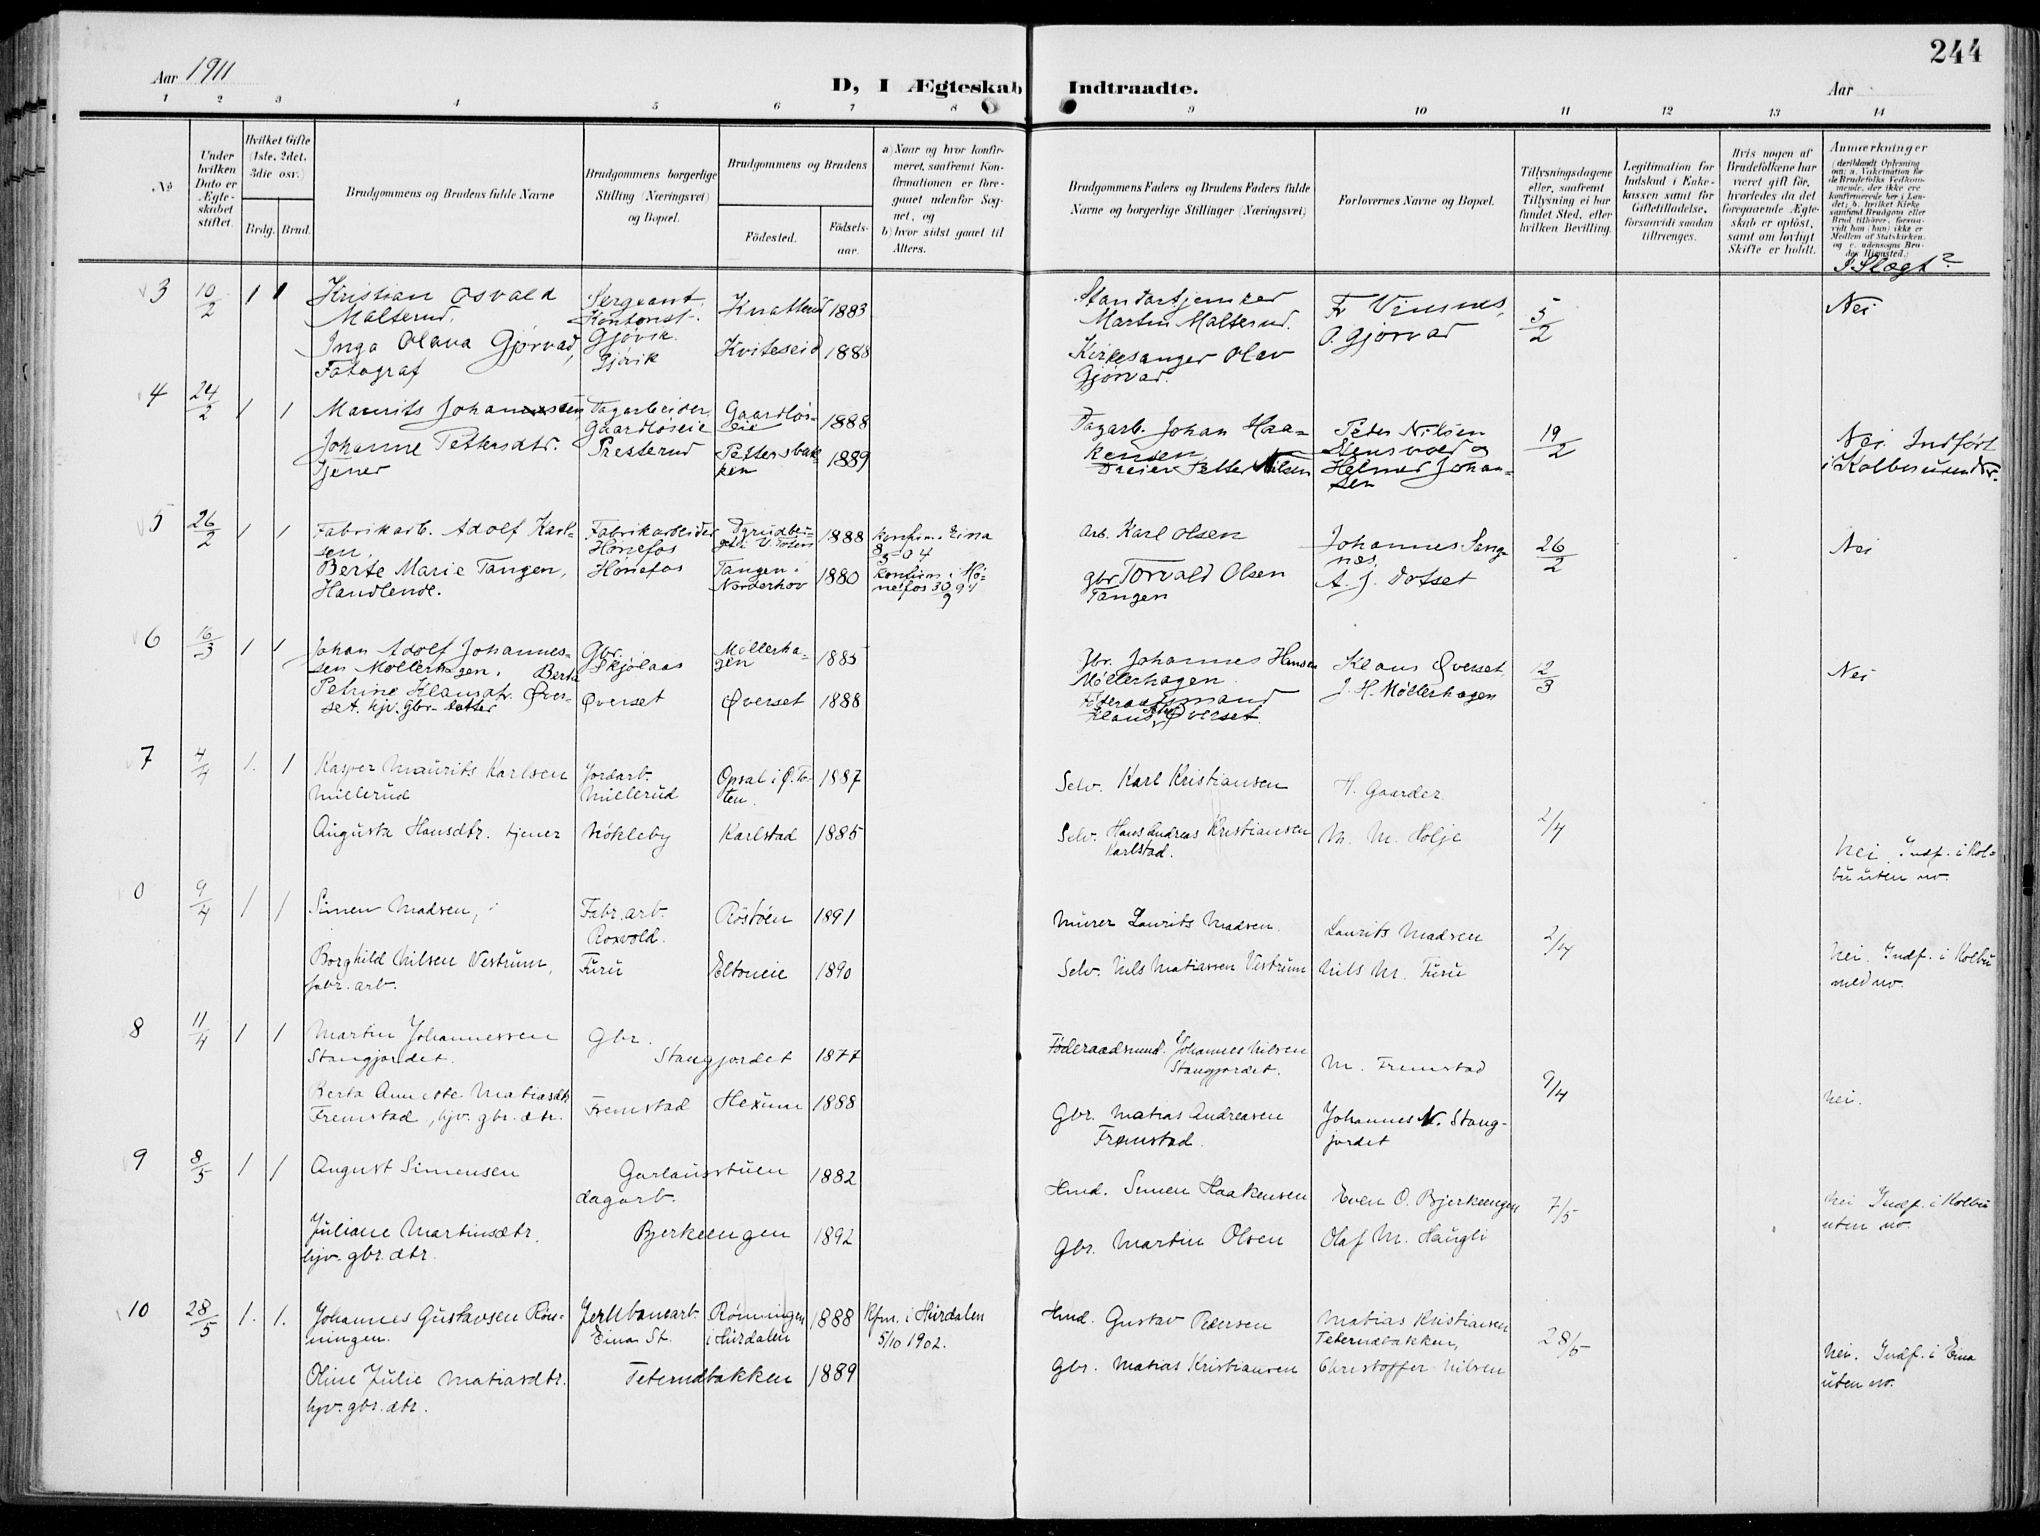 244
Aar 1911
D, I Ægteskab Indtraadte.
Aar
1 2 3 4 5 6 7 8 9 10 11 12 13 14
No
Under hvilken Dato er Ægteskabet stiftet.
Hvilket Gifte (1ste, 2det, 3die osv.)
Brdg. Brud.
Brudgommens og Brudens fulde Navne
Brudgommens borgerlige Stilling (Næringsvei) og Bopæl.
Brudgommens og Brudens
Fødested.
Fødselsaar.
a) Naar og hvor konfirmeret, saafremt Konfirmationen er foregaaet udenfor Sognet, og
b) hvor sidst gaaet til Alters.
Brudgommens Faders og Brudens Faders fulde Navne og borgerlige Stillinger (Næringsvei)
Forlovernes Navne og Bopæl.
Tillysningsdagene eller, saafremt Tillysning ei har fundet Sted, efter hvilken Bevilling.
Legitimation for Indskud i Enkekassen samt for Giftetilladelse, forsaavidt saadan tiltrænges.
Hvis nogen af Brudefolkene har været gift før, hvorledes da det foregaaende Ægteskab er opløst, samt om lovligt Skifte er holdt.
Anmærkninger
I Slægt?
3 10/2 1 1
Kristian Osvald
Malterud.
Sergeant,
Kontorist.
Gjøvik.
Knatterud 1883
Inga Olava Gjørvad,
Fotograf
Gjøvik
Kviteseid 1888
Standartjunker
Martin Malterud.
Kirkesanger Olav
Gjørvad.
O. Gjørvad
5/2
Nei
4 24/2 1 1
Maurits Johannessen,
Dagarbeider,
Gaardløseie
Gaardløseie
1888
Johanne Pettersdtr.
tjener
Presterud
Pettersbakken
1889
Dagarb. Johan Haakensen
Dreier Petter Nilsen
Peder Nilsen
Stensvold og
Helmer Johansen
19/2
Nei Indført
i Kolbu uten Nr.
5 26/2 1 1
Fabrikarb. Adolf Karlsen.
Fabrikarbeider
Hønefos
1888
konfirm. i Eina
Berte Marie Tangen,
Handlende.
Hønefos
Tangen i
Norderhov
1880
konfirm. i Hønefos 30/9 94
Arb. Karl Olsen
gbr Torvald Olsen
Tangen
Johannes Sangnæs,
A. J. Dotset
26/2
Nei
6 16/3 1 1
Johan Adolf Johannessen
Møllerhagen. Berta
Petrine Klausdtr. Øverset.
hjv. gbr.-datter
Gbr.
Skjølaas
Møllerhagen
1885
Øverset
Øverset 1888
Gbr. Johannes Hansen
Møllerhagen.
Føderaadsmand
Klaus Øverset.
Klaus Øverset,
J. H. Møllerhagen
12/3
Nei
7 4/4 1. 1
Kasper Maurits Karlsen
Millerud
Jordarb.
Millerud
Opsal i Ø. Toten.
1887
Augusta Hansdtr. tjener
Nökleby
Karlstad 1885
Selv. Karl Kristiansen
Selv. Hans Andreas Kristiansen
Karlstad.
H. Gaarder.
M. M. Holje
2/4
Nei. Indf. i Kolbu
uten no.
0 9/4 1 1
Simen Madsen,
Fabr. arb.
Roxvold.
Röstöen 1891
Borghild Nilsen Vestrum,
fabr. arb.
Furu
Eltoneie 1890
Murer Laurits Madsen.
Selv. Nils Matiassen Vestrum
Laurits Madsen
Nils M. Furu
2/4
Nei. Indf. i Kolbu
med no.
8 11/4 1 1
Martin Johannessen
Stangjordet.
Gbr.
Stangjordet 1877
Berta Annette Matiasdtr
Fremstad, hjv. gbr. dtr.
Fremstad
Hexum 1888
Föderaadsmand. Johannes Nilsen
Stangjordet.
Gbr. Matias Andreasen
Fremstad.
M. Fremstad
Johannes N. Stangjordet
9/4
Nei.
9 8/5 1 1
August Simensen
Garlausstuen
dagarb.
1882
Juliane Martinsdtr.
hjv. gbr. dtr.
Bjerkeengen 1892
Hmd. Simen Haakensen
Gbr. Martin Olsen
Even O. Bjerkeengen
Olaf M. Haugli
7/5
Nei Indf. i Kolbu
uten no.
10 28/5 1. 1.
Johannes Gustavsen Rönningen.
Jernbanearb.
Eina St.
Rönningen
i Hurdalen
1888
Kfm. i Hurdalen
5/10 1902.
Oline Julie Matiasdtr.
hjv. gbr. dtr.
Feterudbakken 1889
Hmd. Gustav Pedersen
Gbr. Matias Kristiansen
Matias Kristiansen
Feterudbakken,
Christoffer Nilsen
28/5
Nei. Indf. i Eina
uten no.